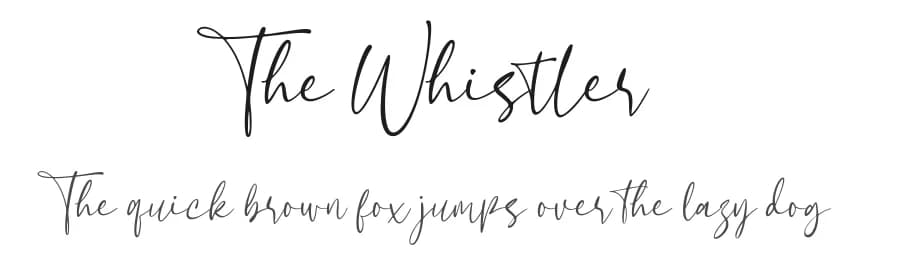 The Whistler
The quick brown fox jumps over the lazy dog